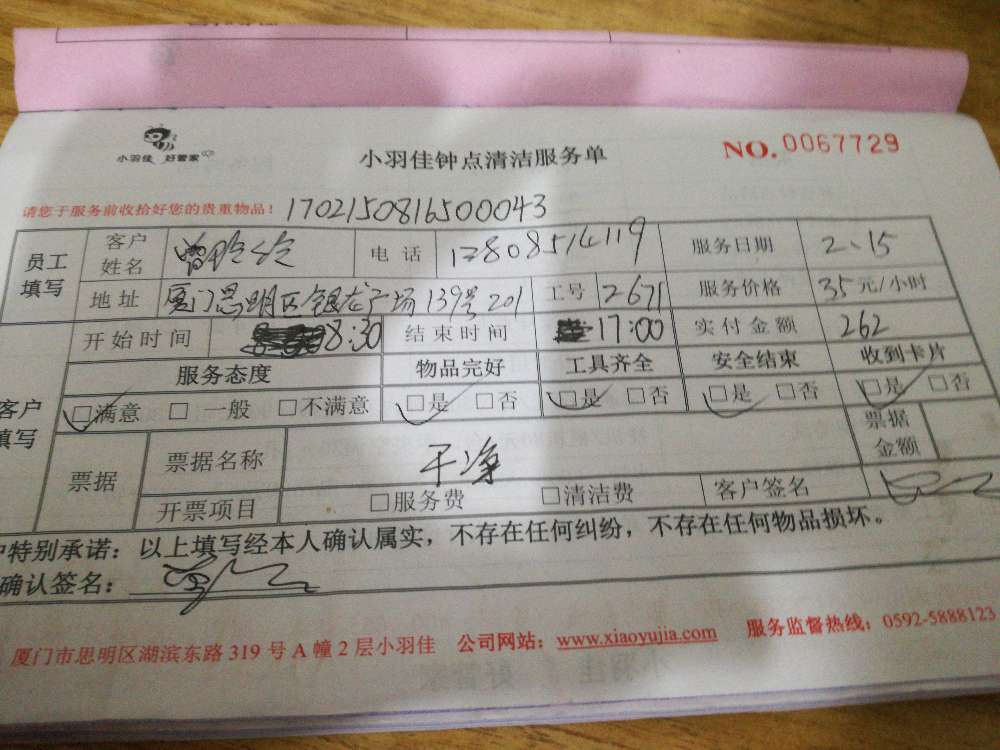 小羽佳 好管家
小羽佳钟点清洁服务单
NO.0067729
请您于服务前收拾好您的贵重物品! 1702150816500043
员工填写 客户姓名 曾 电话 服务日期 2.15
地址 厦门思明区银龙广场139号201 工号 2671 服务价格 35元/小时
开始时间 8:30 结束时间 17:00 实付金额 262
客户填写 服务态度 物品完好 工具齐全 安全结束 收到卡片
□满意 □一般 □不满意 □是 □否 □是 □否 □是 □否 □是 □否
票据 票据名称 干净 票据金额
开票项目 □服务费 □清洁费 客户签名
户特别承诺：以上填写经本人确认属实，不存在任何纠纷，不存在任何物品损坏。
确认签名：
厦门市思明区湖滨东路319号A幢2层小羽佳 公司网站：www.xiaoyujia.com 服务监督热线：0592-5888123